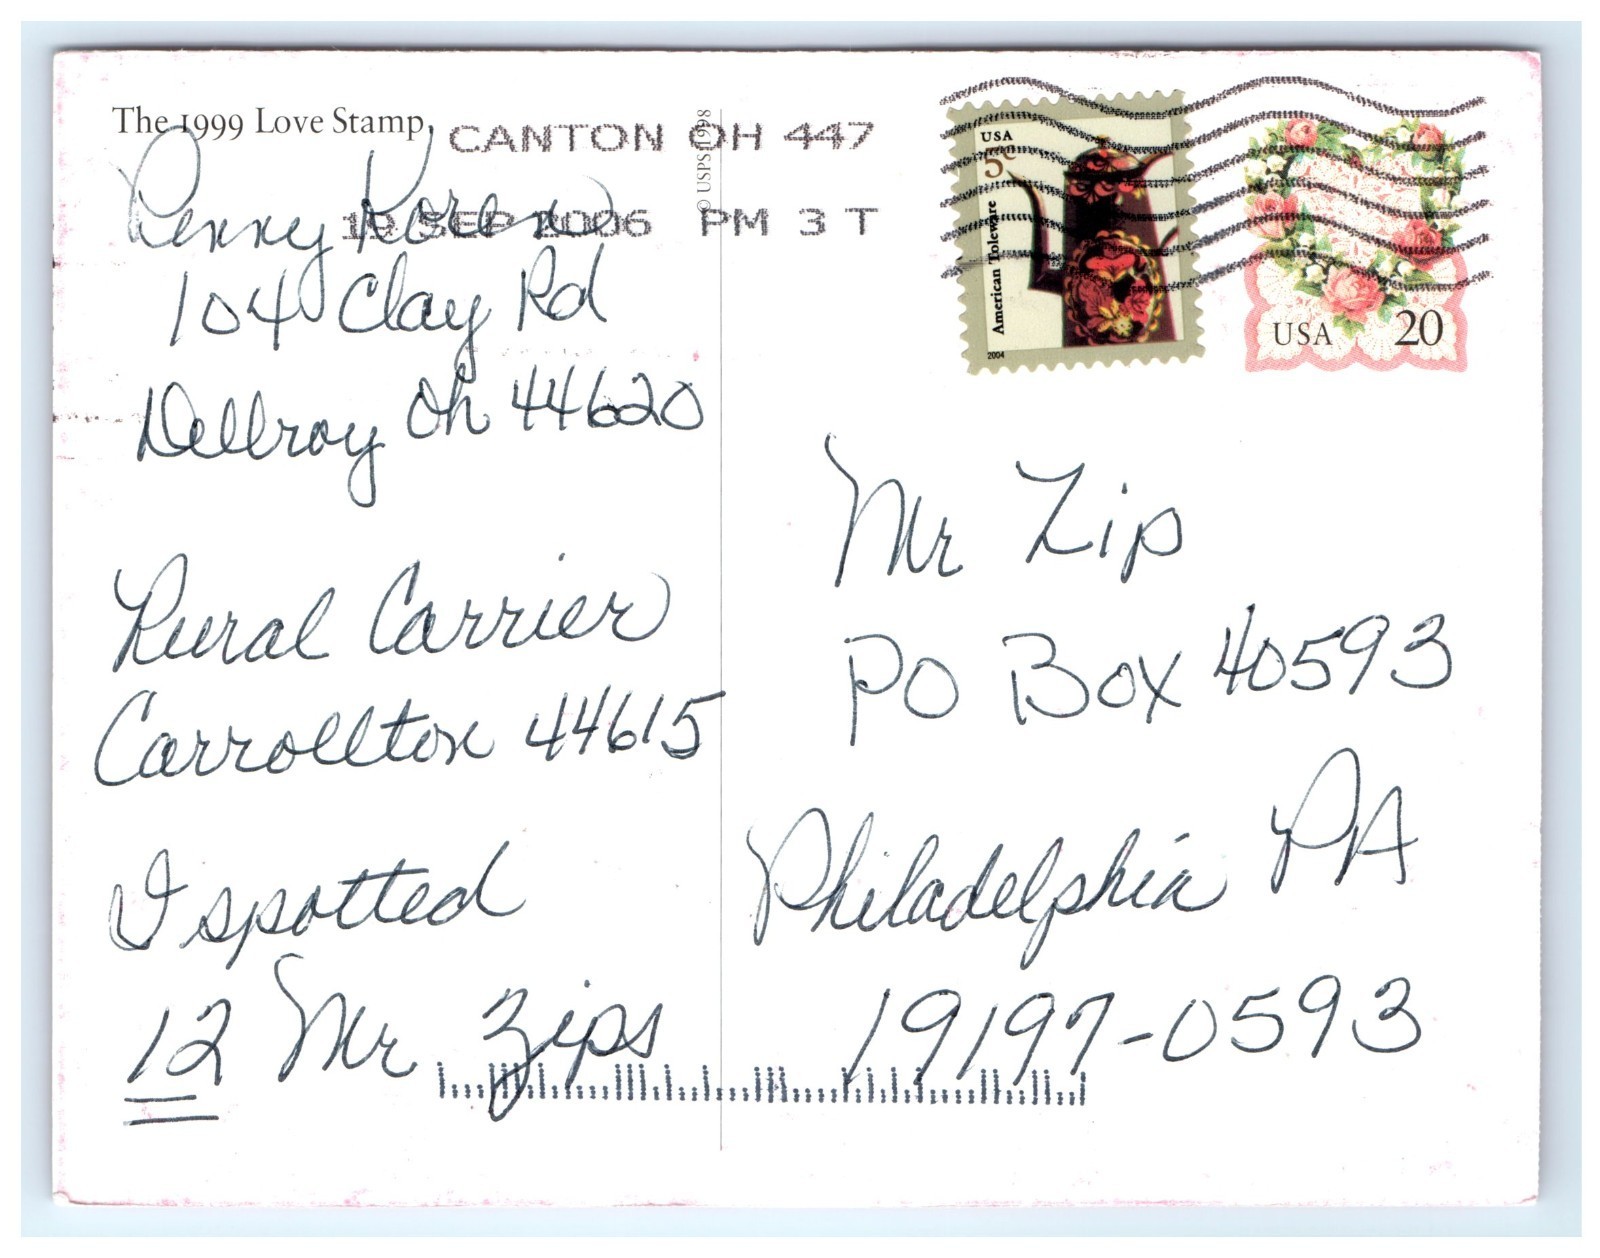 The 1999 Love Stamp,
CANTON OH 447
19 SEP 2006 PM 3 T
© USPS 1998
USA
5c
American Toleware
2004
USA 20
Penny
104 Clay Rd
Dellroy Oh 44620
Rural Carrier
Carrollton 44615
I spotted
12 Mr Zips
Mr Zip
PO Box 40593
Philadelphia PA
19197-0593